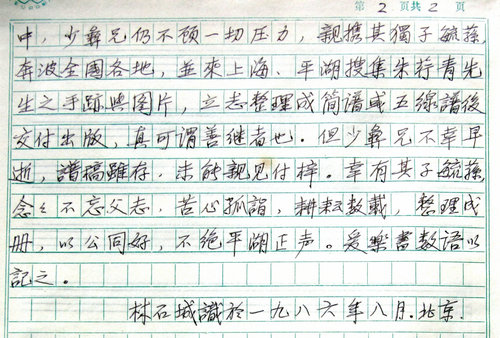 第 2 页共 2 页
中，少彝兄仍不顾一切压力，親携其獨子毓蓀，
奔波全國各地，並來上海、平湖搜集朱荇青先
生之手跡與图片，立志整理成简谱或五線譜後
交付出版，真可谓善继者也。但少彝兄不幸早
逝，譜稿雖存，未能親见付梓。幸有其子毓蓀
念念不忘父志，苦心孤詣，耕耘数載，整理成
册，以公同好，不绝平湖正声。爰樂書数语以
記之。
林石城識於一九八六年八月.北京.